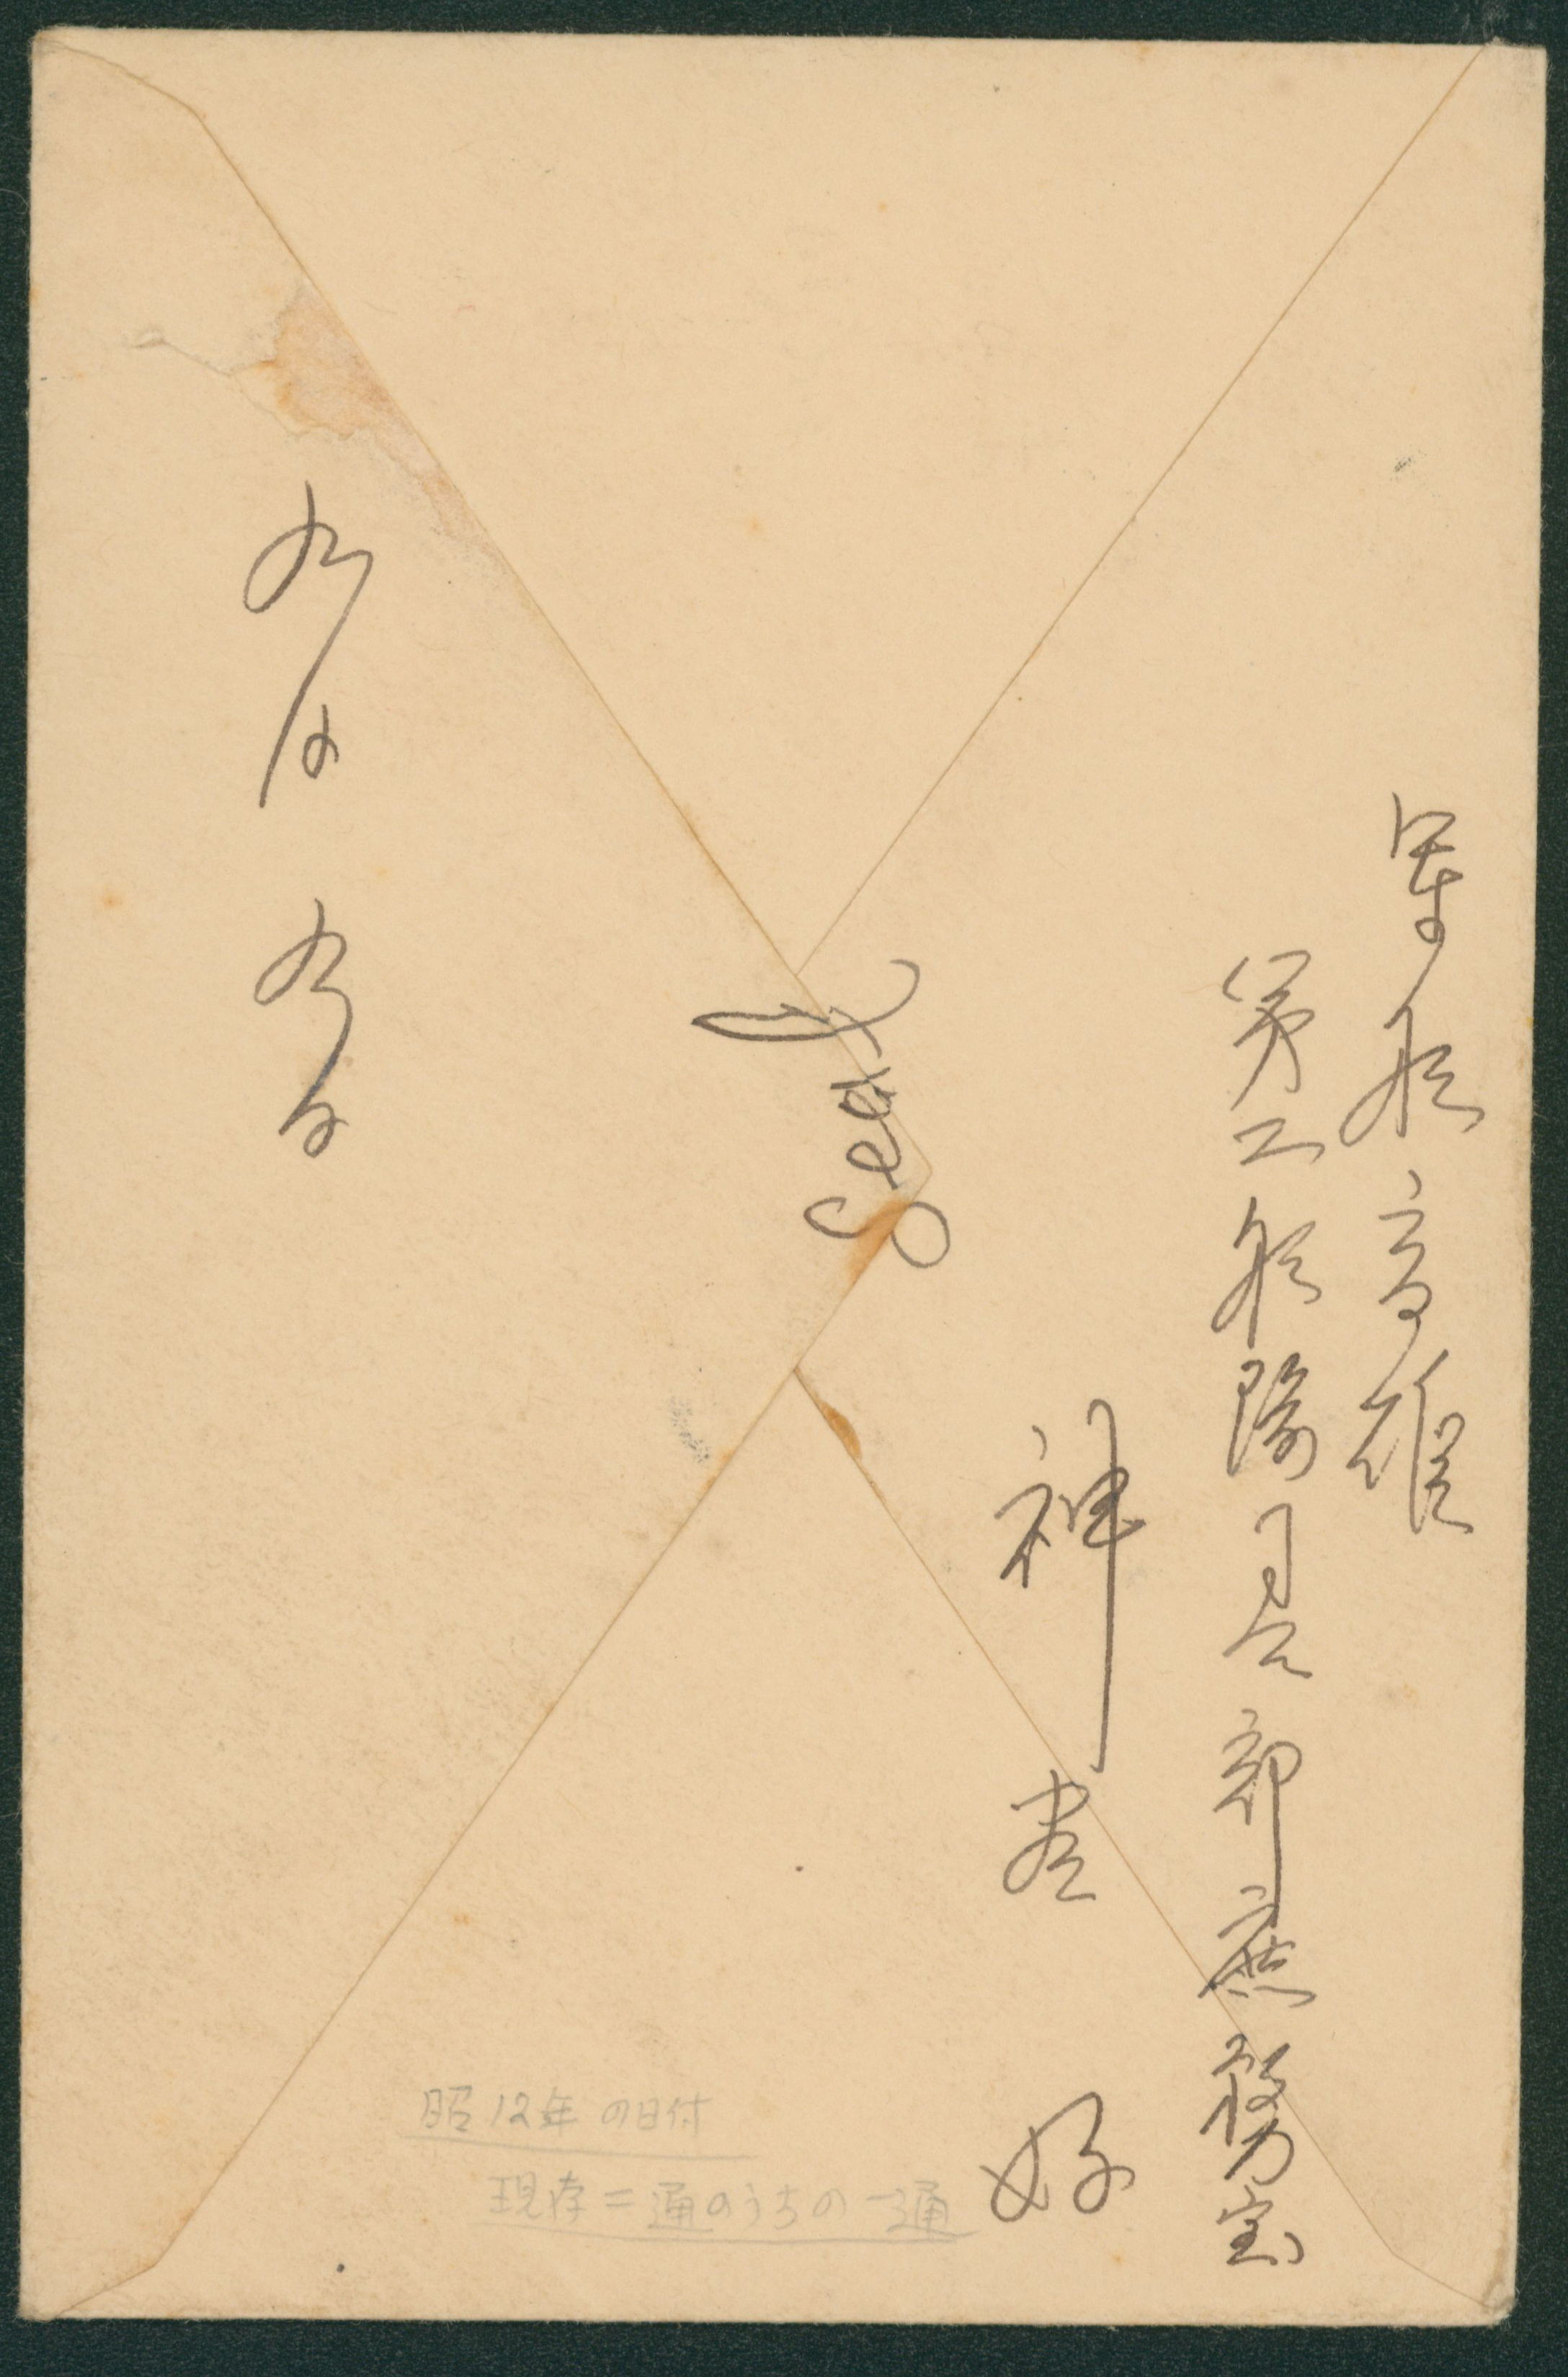 軍艦高雄
第二艦隊司令部庶務室
神 重 好
Seal
九月 九日
昭12年の日付
現存二通のうちの一通